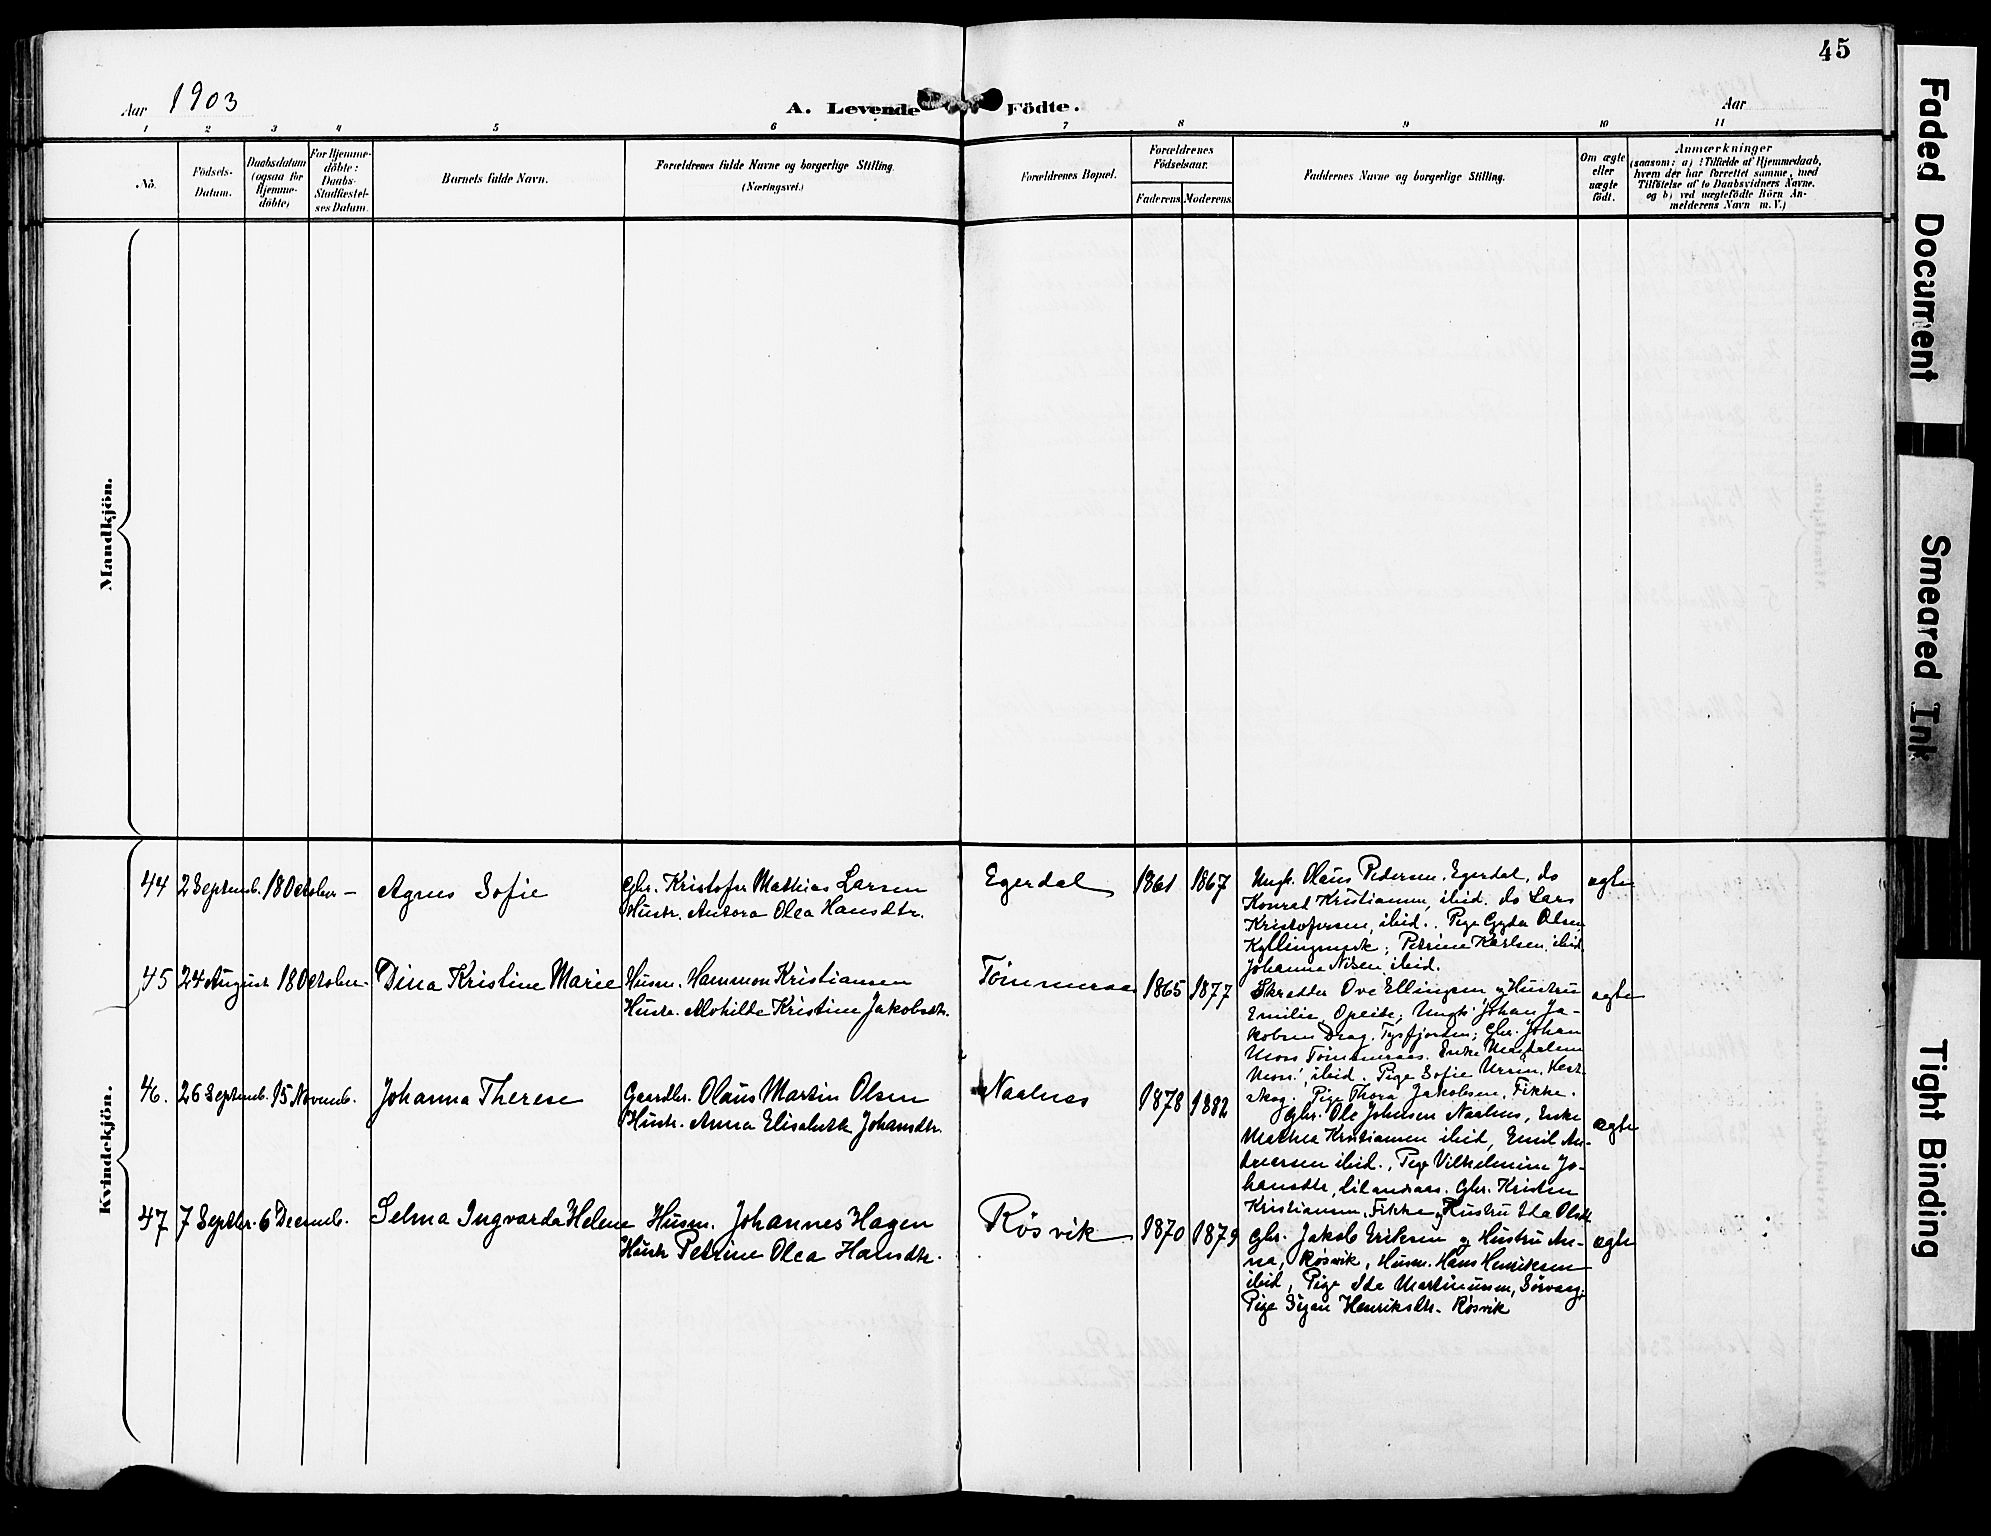 45
Aar 1903
A. Levende Födte.
Aar
1 2 3 4 5 6 7 8 9 10 11
No.
Födsels-
Datum.
Daabsdatum
(ogsaa for
Hjemme-
döbte)
For Hjemme-
döbte:
Daabs-
Stadfæstel-
ses Datum.
Barnets fulde Navn.
Forældrenes fulde Navne og borgerlige Stilling.
(Næringsvei.)
Forældrenes Bopæl.
Forældrenes
Födselsaar.
Faderens. Moderens.
Faddernes Navne og borgerlige Stilling.
Om ægte
eller
uægte
födt.
Anmærkninger
(saasom: a) i Tilfælde af Hjemmedaab,
hvem der har forrettet samme, med
Tilföielse af to Daabsvidners Navne.
og b) ved uægtefödte Börn An-
melderens Navn m. V.)
Mandkjön.
Kvindekjön.
44 2 Septemb. 18 October – Agnes Sofie
Gbr. Kristofer Mathias Larsen
Hustr. Aurora Olea Hansdtr.
Egerdal 1861 1867
Ungk. Olaus Pedersen, Egerdal, do
Konrad Kristiansen, ibid. do Lars
Kristofersen, ibid. Pige Gyda Olsen
Kyllingmark; Petrine Karlsen, ibid
Johanna Nilsen ibid.
ægte
45 24 August 18 October. Dina Kristine Marie
Husm. Hammon Kristiansen
Hustr. Mathilde Kristine Jakobsdtr.
Tömmeraas 1865 1877
Skrædder Ove Ellingsen og Hustru
Emilie, Opeide; Ungk. Johan Ja-
kobsen Drag, Tysfjorden; Gbr. Johan
Mons Tömmeraas. Enke Magdalena
Mons., ibid. Pige Sofie
skog. Pige Thora Jakobsen, Fikke.
ægte
46. 26 Septemb. 15 Novemb. Johanna Therese
Gaardbr. Olaus Martin Olsen
Hustr. Anna Elisabeth Johansdtr.
Naalnes 1878 1882
Gbr. Ole Johnsen Naalnes, Enke
Mathea Kristiansen ibid, Emil An-
dreasen ibid., Pige Vilhelmine Jo-
hansdtr, Gbr. Kristen
Kristiansen, Fikke og Hustru Ida Olsdtr.
ægte
47 7 Septbr. 6 Decemb. Selma Ingvarda Helene
Husm. Johannes Hagen
Hustr Petrine Olea Hansdtr.
Rösvik 1870 1879
Gbr. Jakob Eriksen og Hustru An-
na, Rösvik, Husm. Hans Henriksen
ibid, Pige Ida Martinussen, Sörvang,
Pige Sigan Henriksdtr. Rösvik
ægte
Faded Document
Smeared Ink
Tight Binding